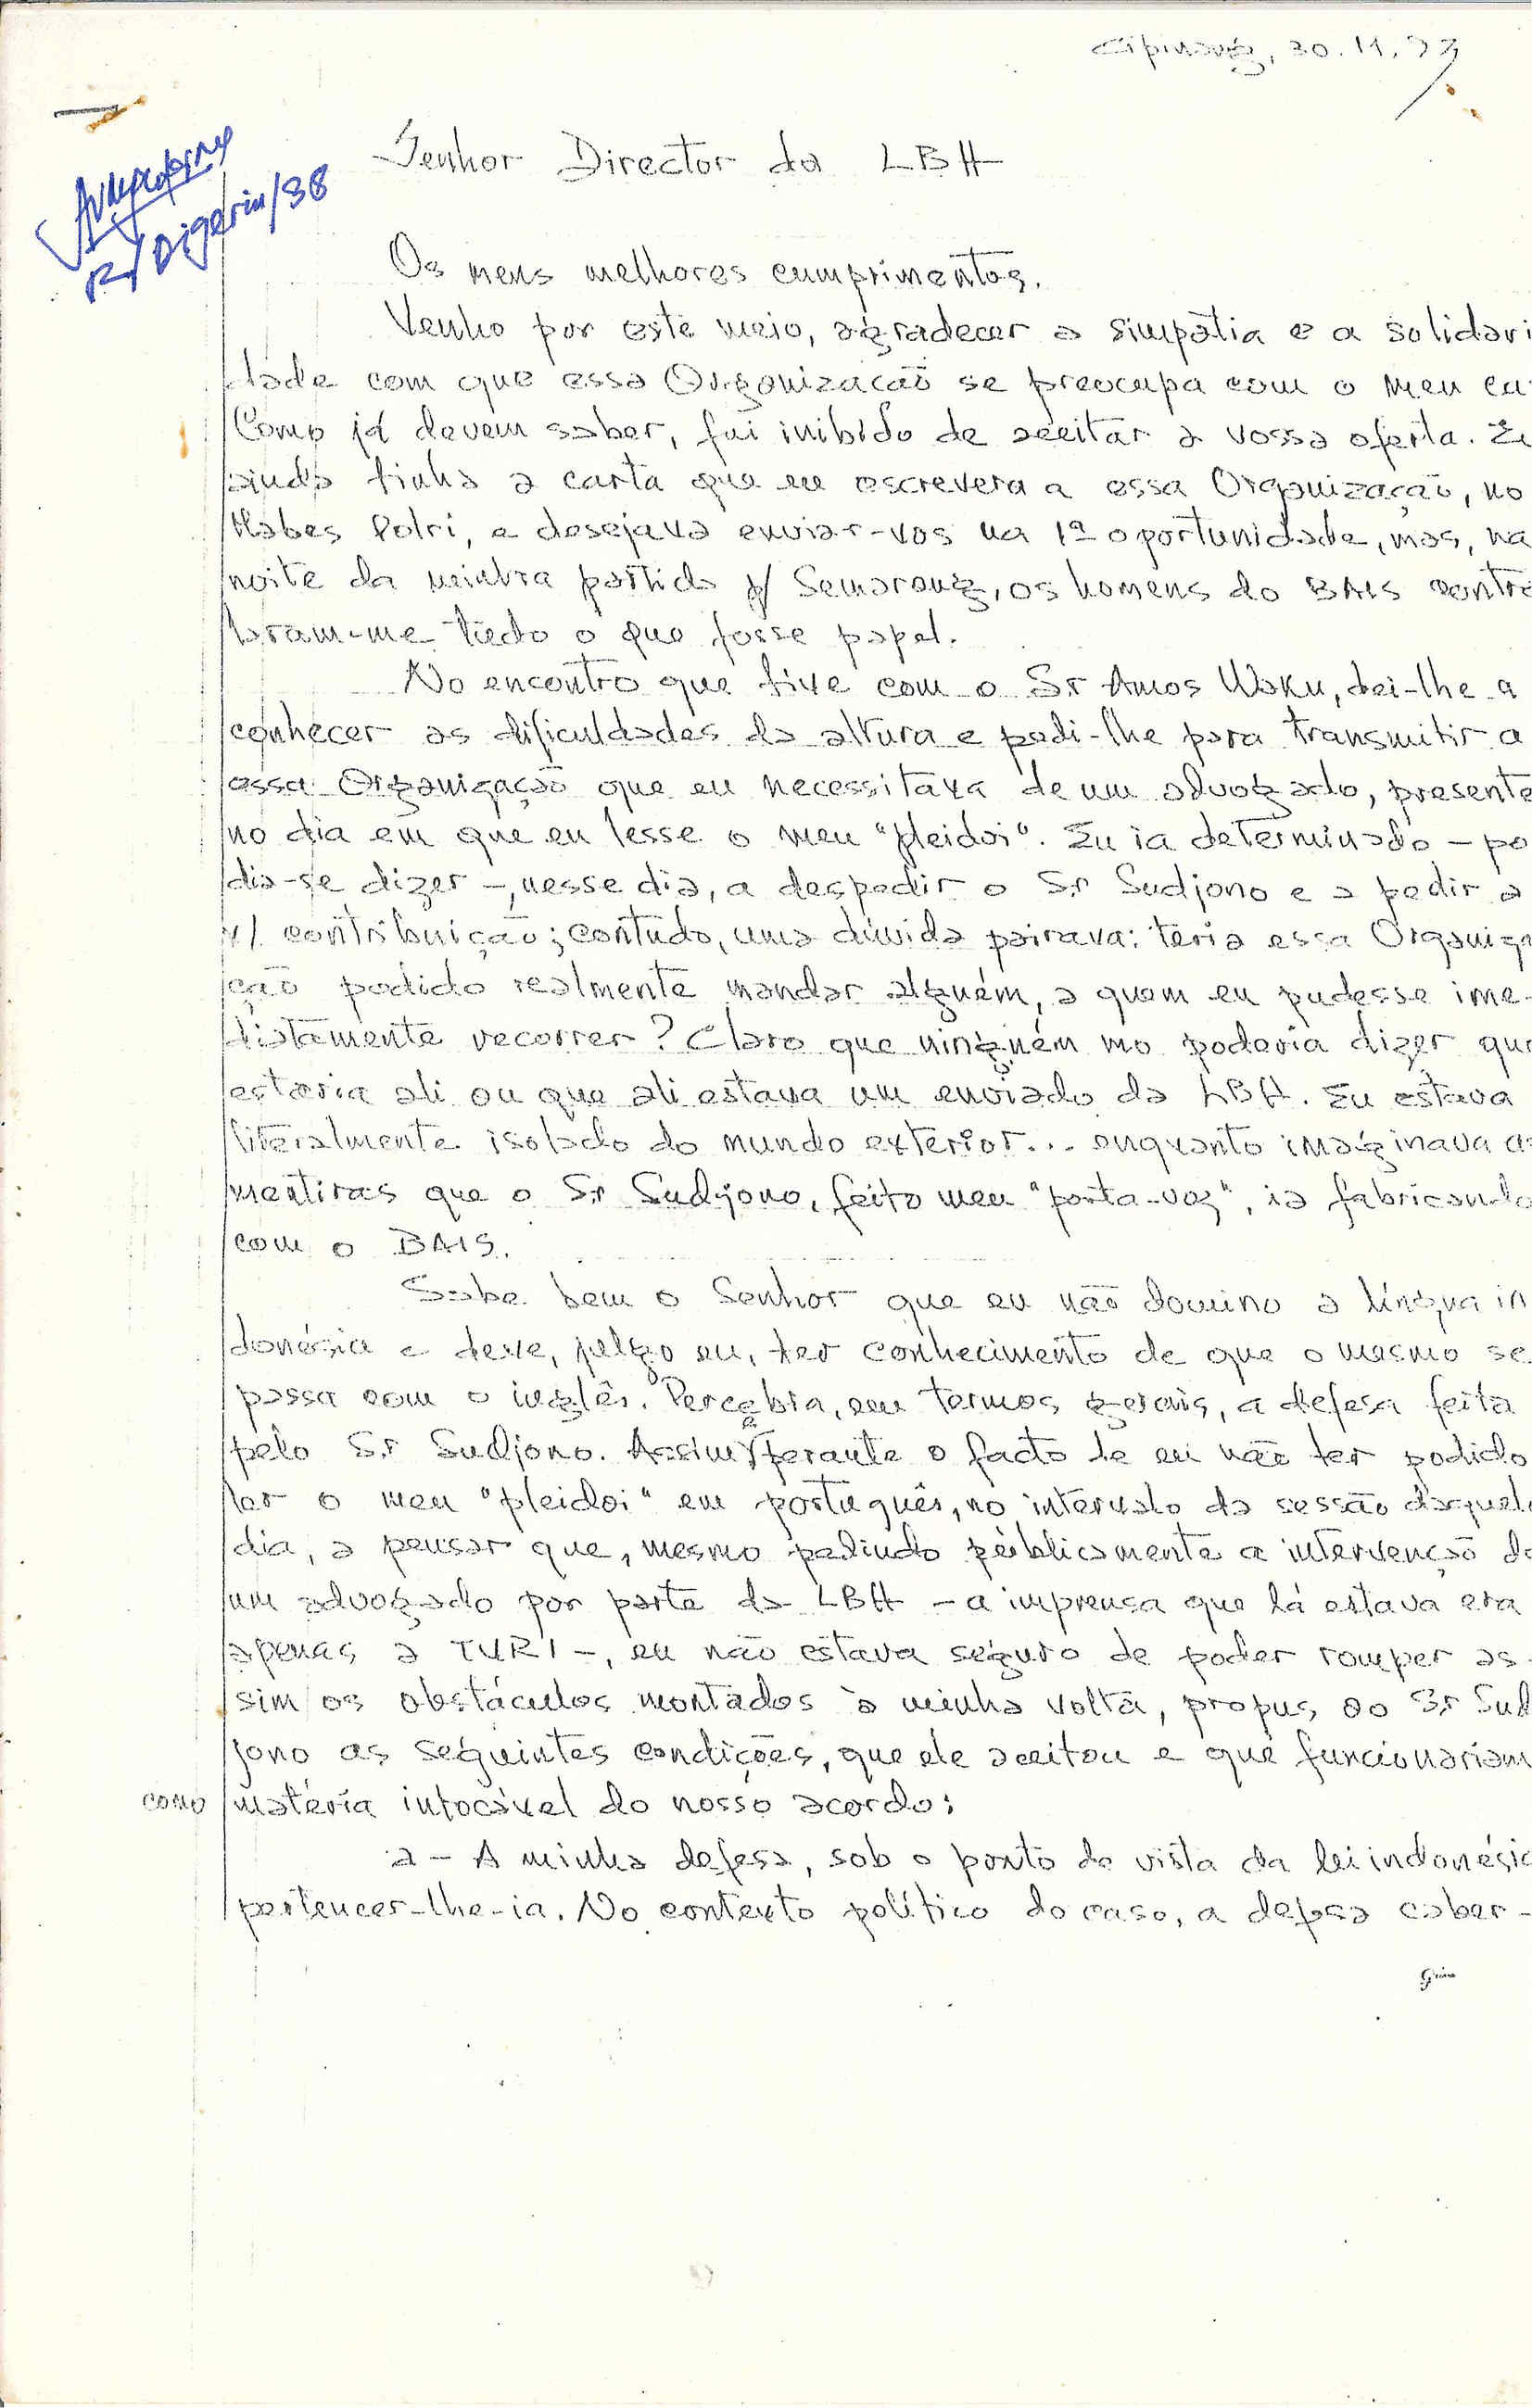 Cipinang, 30.11.93
Senhor Director da LBH
R/Digerin/98
Os meus melhores cumprimentos.
Venho por este meio, agradecer a simpatia e a solidari
dade com que essa Organização se preocupa com o meu ca
Como já devem saber, fui inibido de aceitar a vossa oferta. Eu
ainda tinha a carta que eu escrevera a essa Organização, no
Mabes Polri, e desejava enviar-vos na 1ª oportunidade, mas, na
noite da minha partida p/ Semarang, os homens do BAIS contro
laram-me tudo o que fosse papel.
No encontro que tive com o Sr Amos Waku, dei-lhe a
conhecer as dificuldades da altura e pedi-lhe para transmitir a
essa Organização que eu necessitava de um advogado, presente
no dia em que eu lesse o meu "pleidoi". Eu ia determinado - po
dia-se dizer -, nesse dia, a despedir o Sr Sudjono e a pedir a
v/ contribuição; contudo, uma dúvida pairava: teria essa Organiza
ção podido realmente mandar alguém, a quem eu pudesse ime-
diatamente recorrer? Claro que ninguém mo poderia dizer que
estaria ali ou que ali estava um enviado da LBH. Eu estava
literalmente isolado do mundo exterior... enquanto imaginava as
mentiras que o Sr Sudjono, feito meu "porta-voz", ia fabricando
com o BAIS.
Sabe bem o Senhor que eu não domino a língua in
donésia e deve, julgo eu, ter conhecimento de que o mesmo se
passa com o inglês. Percebia, em termos gerais, a defesa feita
pelo Sr Sudjono. Assim e perante o facto de eu não ter podido
ler o meu "pleidoi" em português, no intervalo da sessão daquele
dia, a pensar que, mesmo pedindo públicamente a intervenção de
um advogado por parte da LBH - a imprensa que lá estava era
apenas a TVRI -, eu não estava seguro de poder romper as-
sim os obstáculos montados à minha volta, propus ao Sr Sud
jono as seguintes condições, que ele aceitou e que funcionariam
como matéria intocável do nosso acordo:
a - A minha defesa, sob o ponto de vista da lei indonésia
pertencer-lhe-ia. No contexto político do caso, a defesa caber-